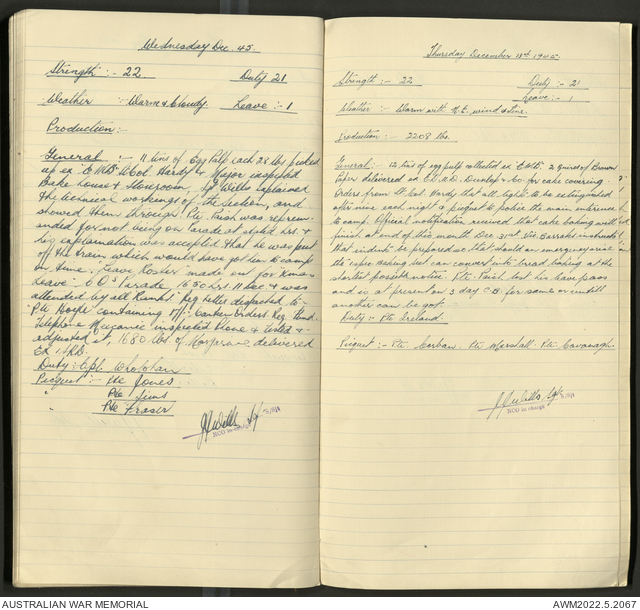 Wednesday Dec. 45.
Strength :- 22. Duty 21
Weather :- Warm & Cloudy. Leave :- 1
Production :-
General :- 11 tins of Egg Pulp each 28 lbs picked
up ex E.M.B. Lt Col Hardy & Major inspected
Bake house & Storeroom, Sgt Wills explained
the technical workings of the Section, and
showed them through. Pte Paish was reprim-
anded for not being on Parade at hrs. &
his explanation was accepted that he was put
off the train which would have got him to camp
on time. Leave Roster made out for Xmas
Leave :- C.O's Parade, 1630 hrs. 11 Dec & was
attended by all Ranks. Reg letter despatched to :-
Pte Hoyle containing Canteen Orders. Reg Fund.
Telephone Mecanic inspected Phone & tested &
adjusted it, 1680 lbs. of Margarine delivered
Ex
Duty : Cpl.
Picquet :- Pte Jones
" Pte Jims
Pte Fraser
J J Wills Sgt
NCO in charge
Thursday December 13th 1945.
Strength :- 22 Duty :- 21
Leave :- 1
Weather :- Warm with N.E. wind & fine.
Production :- 2208 lbs.
General : 12 tins of egg pulp collected ex E.M.B. 2 quires of Brown
Paper delivered ex Dunlop & Co for cake covering
Orders from Lt Col Hardy that all lights to be extinguished
after nine each night & picquet to police the main entrance
to camp. Official notification received that cake baking will
finish at end of this month Dec 31st. Barraki instructed
that indents be prepared so that should an emergency arise
baking but can convert into bread baking at the
shortest possible notice. Pte Paish lost his Campass
and is at present on 3 day C.B. for same or untill
another can be got.
Duty :- Pte Ireland.
Picquet :- Pte Corban. Pte Marshall. Pte Cavanagh
J J Wills Sgt
NCO in charge
AUSTRALIAN WAR MEMORIAL
AWM2022.5.2067